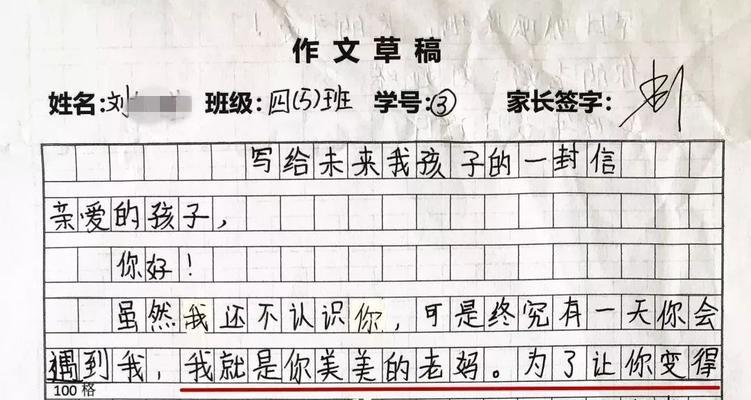 作文草稿
姓名:刘 班级:四(5)班 学号:③ 家长签字:
写给未来我孩子的一封信
亲爱的孩子,
你好!
虽然我还不认识你,可是终究有一天你会
遇到我,我就是你美美的老妈。为了让你变得
100格